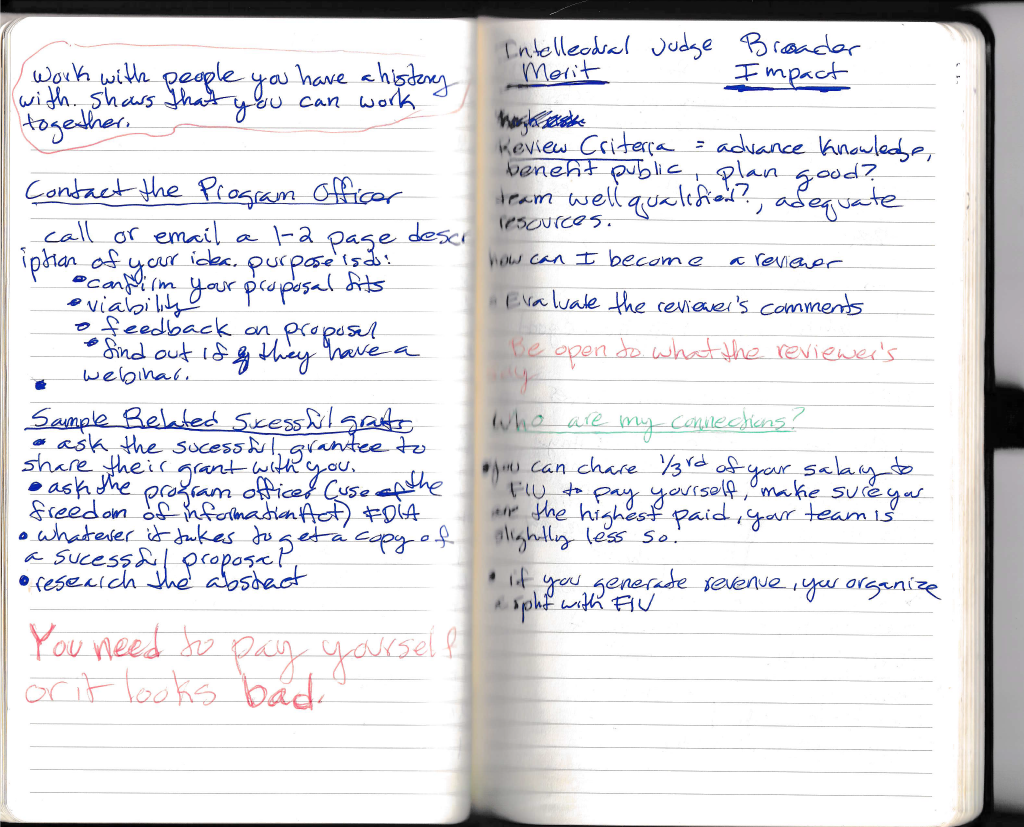 work with people you have a history
with. shows that you can work
together.
Contact the Program Officer
call or email a 1-2 page descr
iption of your idea. purpose is to:
• confirm your proposal fits
• viability
• feedback on proposal
• find out if they have a
webinar.
Sample Related Sucessful grants
• ask the sucessful grantee to
share their grant with you.
• ask the program officer (use the
freedom of information Act) FOIA
• whatever it takes to get a copy of
a sucessful proposal
• research the abstract
You need to pay yourself
or it looks bad.
Intellectual Judge Broader
Merit Impact
Review Criteria = advance knowledge,
benefit public, plan good?
team well qualified?, adequate
resources.
how can I become a reviewer
• Evaluate the reviewer's comments
Be open to what the reviewer's
Who are my connections?
• you can chare 1/3rd of your salary to
FIU to pay yourself, make sure you
are the highest paid, your team is
slightly less so.
• if you generate revenue, you organize
a split with FIU